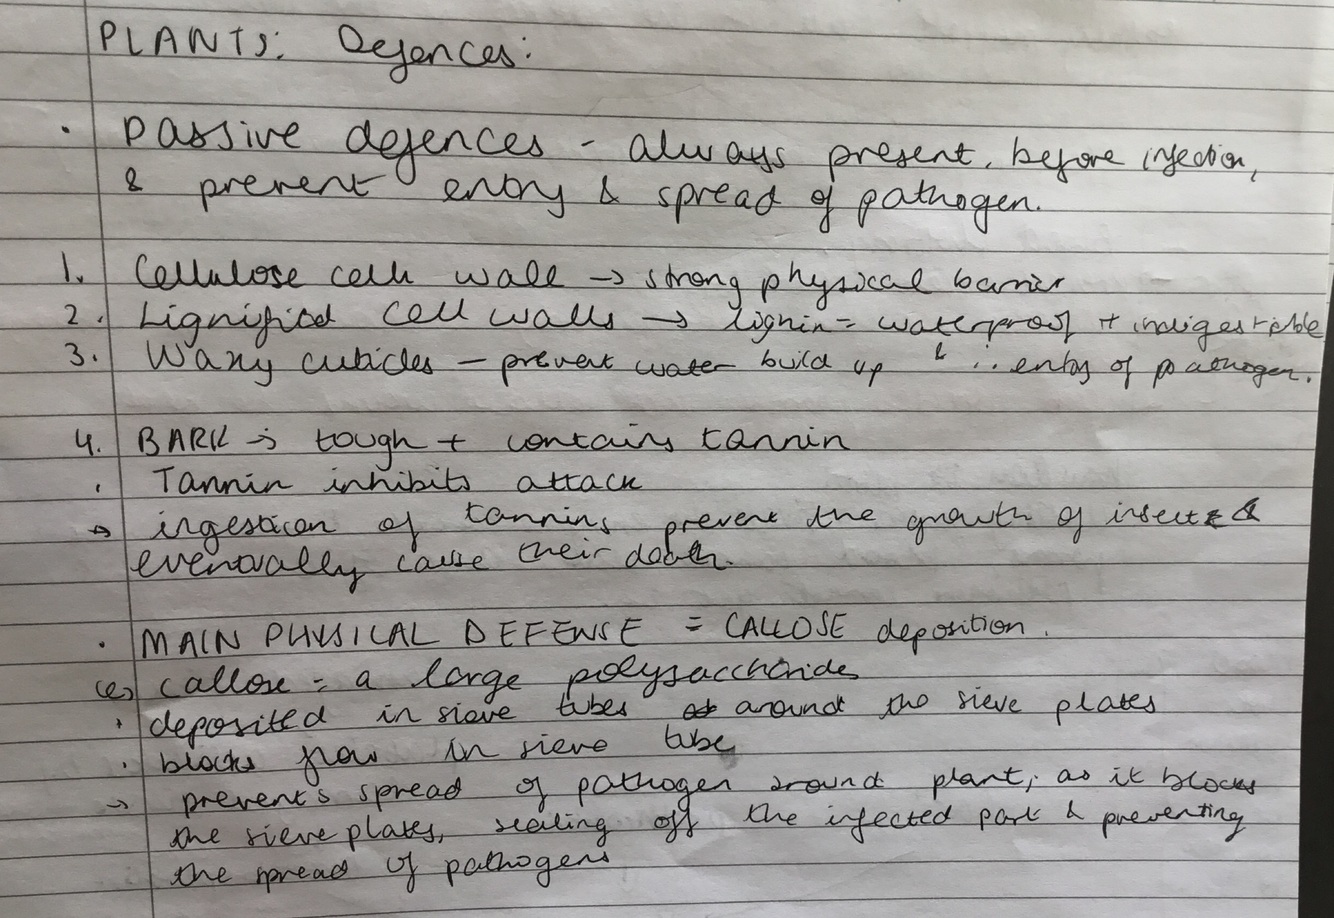 PLANTS: Defences:
• passive defences - always present, before infection,
& prevent entry & spread of pathogen.
1. Cellulose cell wall → strong physical barrier
2. Lignified cell walls → lignin = waterproof + indigestible
3. Waxy cuticles – prevent water build up & ... entry of pathogen.
4. BARK → tough + contains tannin
• Tannin inhibits attack
→ ingestion of tannins prevent the growth of insects &
eventually cause their death.
• MAIN PHYSICAL DEFENSE = CALLOSE deposition.
callose = a large polysaccharide
• deposited in sieve tubes around the sieve plates
• blocks flow in sieve tube
→ prevents spread of pathogen around plant, as it blocks
the sieve plates, sealing off the infected part & preventing
the spread of pathogens